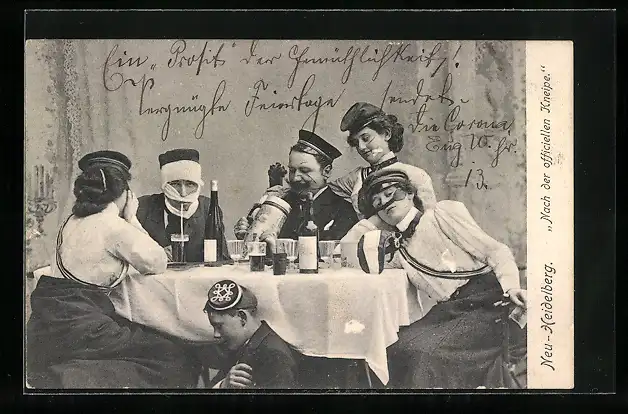 Ein „Prosit“ der Gemüthlichkeit!
vergnügte Feiertage sendet
die Corona
Eug W. hr.
13.
Neu-Heidelberg. „Nach der officiellen Kneipe.“